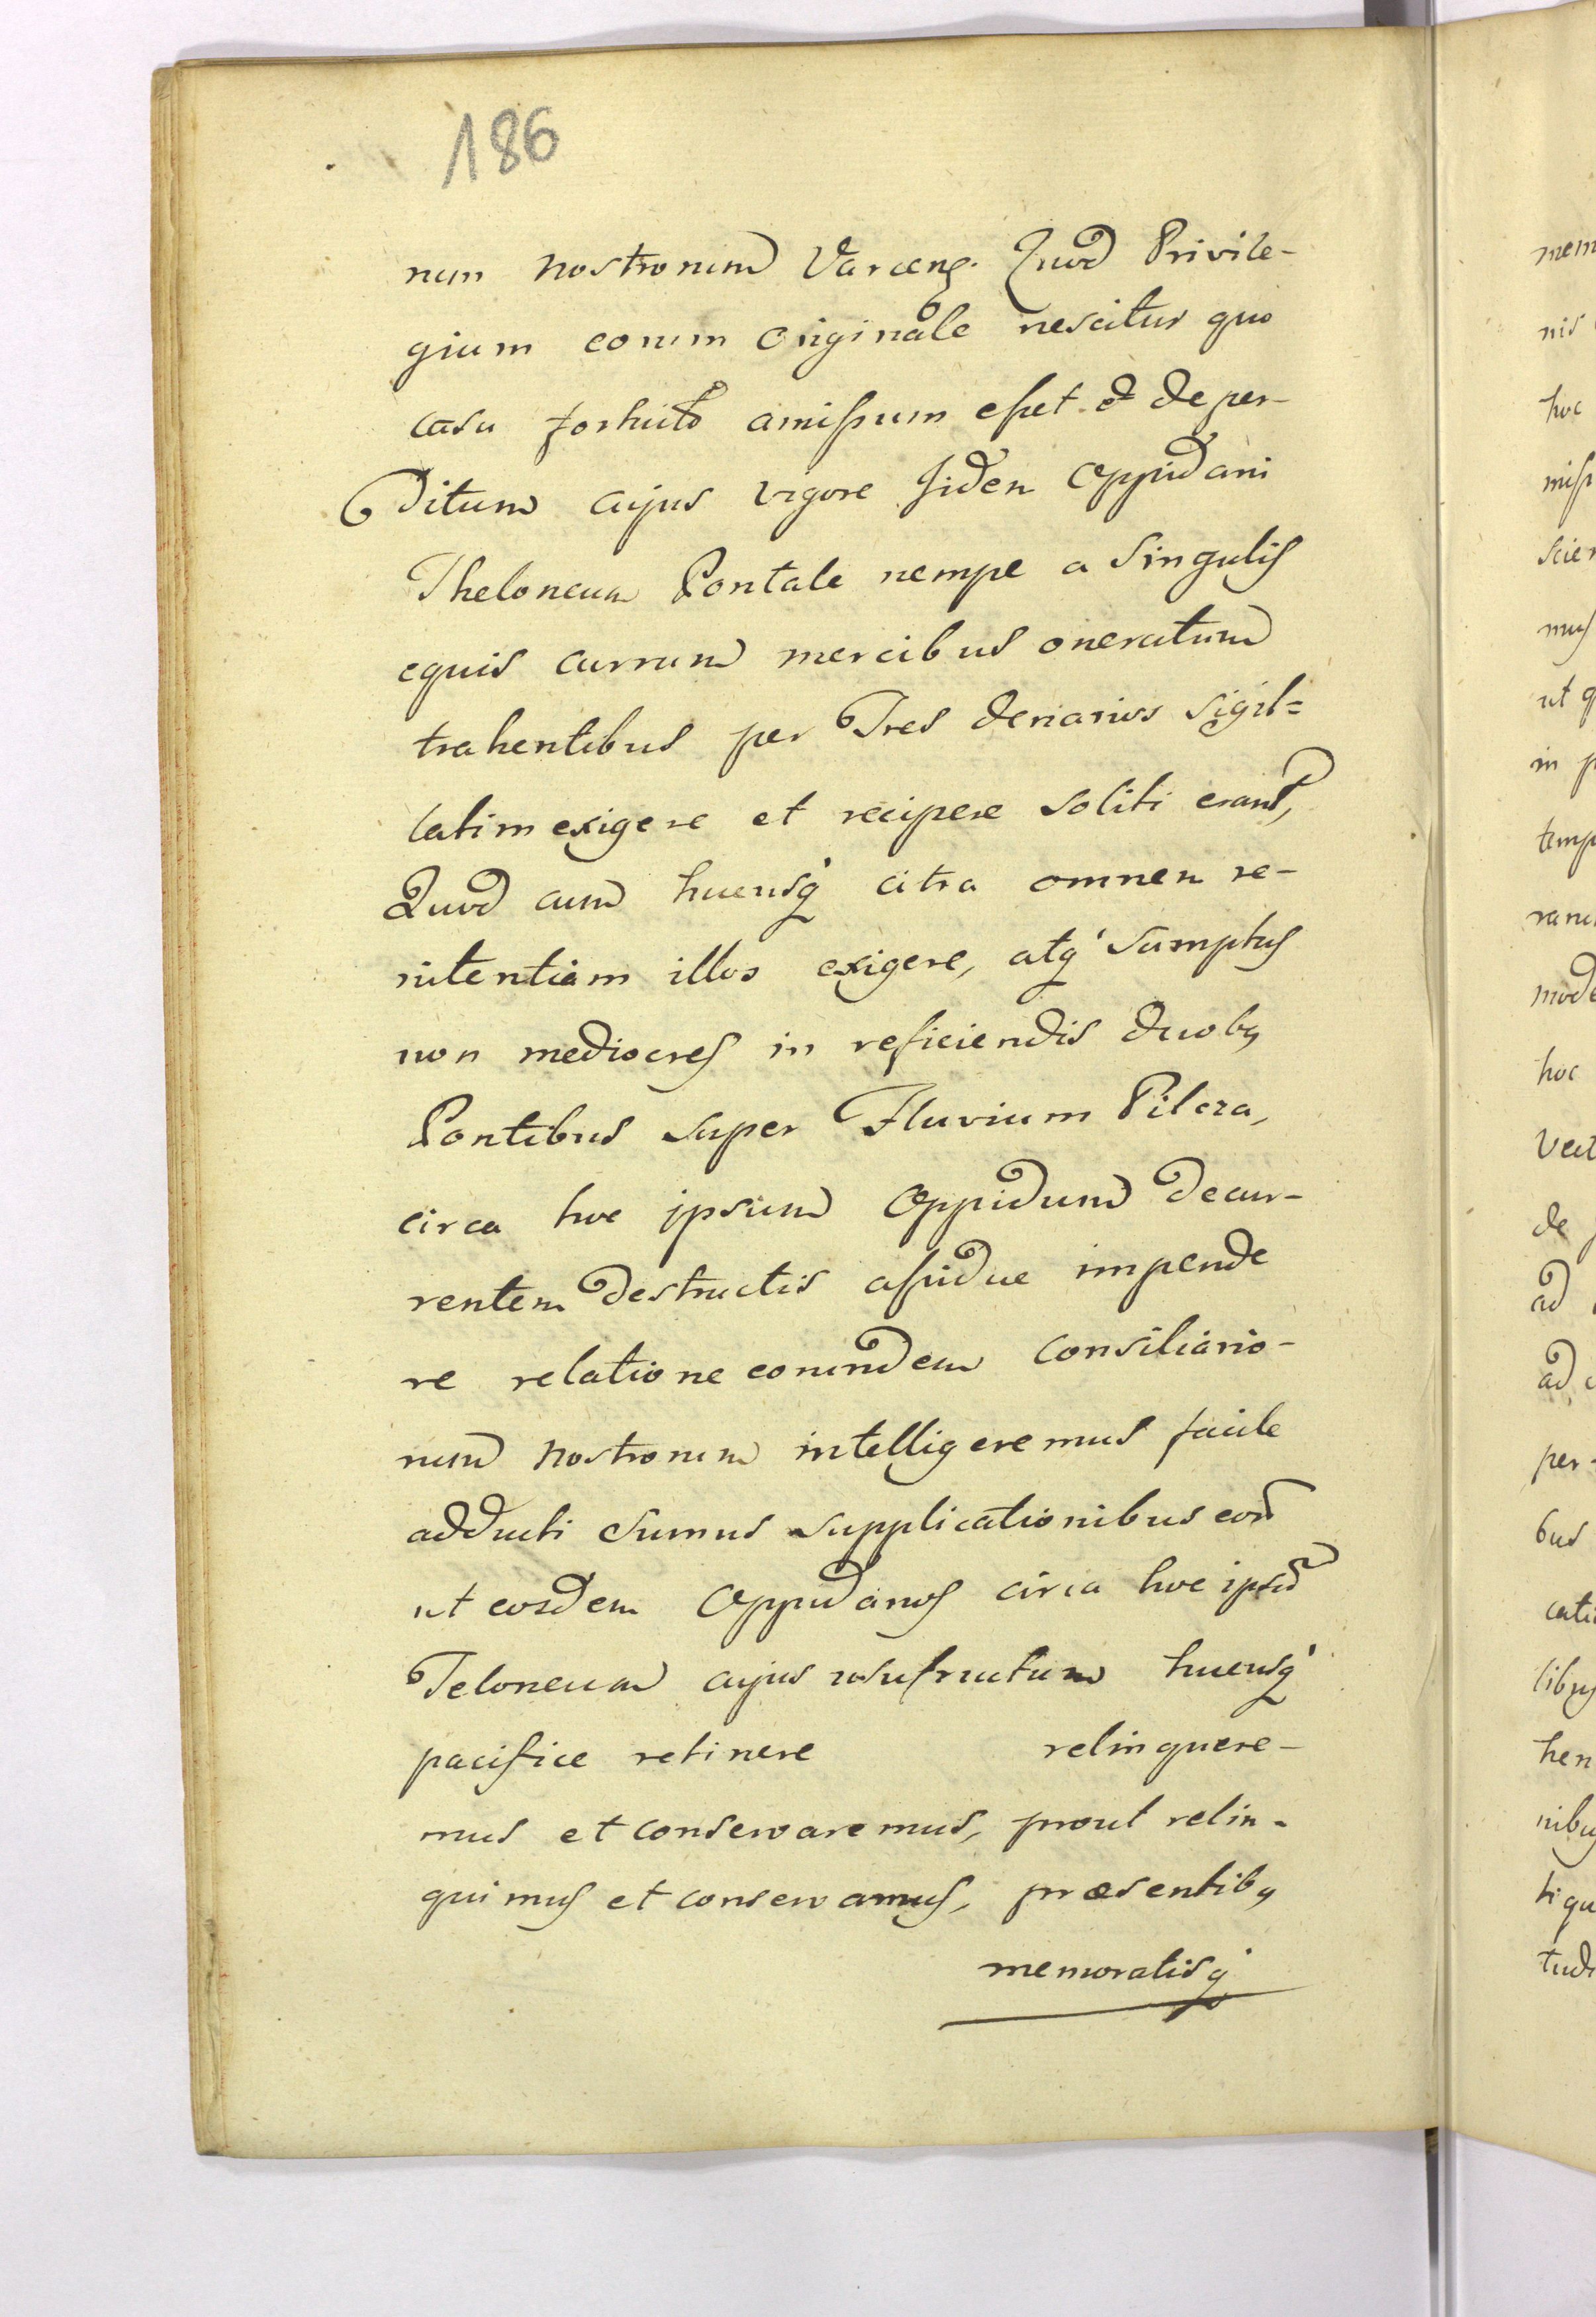 186
rum nostrorum Varceng. Quod Privile-
gium eorum originale nescitur quo
casu fortuito amissum esset et deper-
ditum cujus vigore Iidem Oppidani
Theloneum Pontale nempe a singulis
equis currum mercibus oneratum
trahentibus per Tres denarios sigil=
latim exigere et recipere soliti erant,
Quod cum hucusq' citra omnem re-
nitentiam illos exigere, atq' sumptus
non mediocres in reficiendis duobus
Pontibus super Fluvium Pilcza,
circa hoc ipsum Oppidum decur-
rentem destructis assidue impende
re relatione eorundem Consiliario-
rum nostrorum intelligeremus facile
adducti sumus supplicationibus eorum
ut eosdem Oppidanos circa hoc ipsum
Teloneum cujus usufructum hucusq'
pacifice retinere relinquere-
mus et conservaremus, prout relin-
quimus et conservamus, praesentibus
memoratisq'
mem
nis
hoc
miss
scien
mus
ut q
in p
temp
mode
hoc
Vect
de
ad
ad
per-
bus
cati
hen
nibus
tiqu
tudi